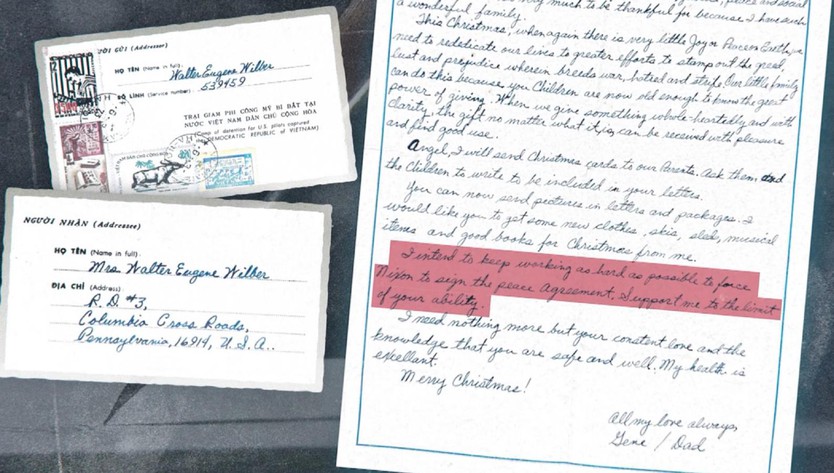 NGƯỜI GỬI (Addresser)
HỌ TÊN (Name in full):
Walter Eugene Wilber
SỐ LÍNH (Service number)
539459
TRẠI GIAM PHI CÔNG MỸ BỊ BẮT TẠI
NƯỚC VIỆT NAM DÂN CHỦ CỘNG HÒA
(Camp of detention for U.S. pilots captured
DEMOCRATIC REPUBLIC OF VIETNAM)
NGƯỜI NHẬN (Addressee)
HỌ TÊN (Name in full):
Mrs Walter Eugene Wilber
ĐỊA CHỈ (Address)
R. D #3,
Columbia Cross Roads,
Pennsylvania, 16914, U.S.A..
very much to be thankful for because I have such
a wonderful family.
This Christmas, when again there is very little Joy or Peace on Earth, we
need to rededicate our lives to greater efforts to stamp out the greed,
lust and prejudice wherein breeds war, hatred and strife. Our little family
can do this because you Children are now old enough to know the great
power of giving. When we give something whole-heartedly and with
Clarity, the gift no matter what it is, can be received with pleasure
and find good use.
Angel, I will send Christmas cards to our Parents. Ask them and
the Children to write to be included in your letters.
You can now send pictures in letters and packages. I
would like you to get some new clothes, skis, sleds, musical
items and good books for Christmas from me.
I intend to keep working as hard as possible to force
Nixon to sign the peace Agreement. Support me to the limit
of your ability.
I need nothing more but your constent love and the
knowledge that you are safe and well. My health is
exellant.
Merry Christmas!
All my love always,
Gene / Dad